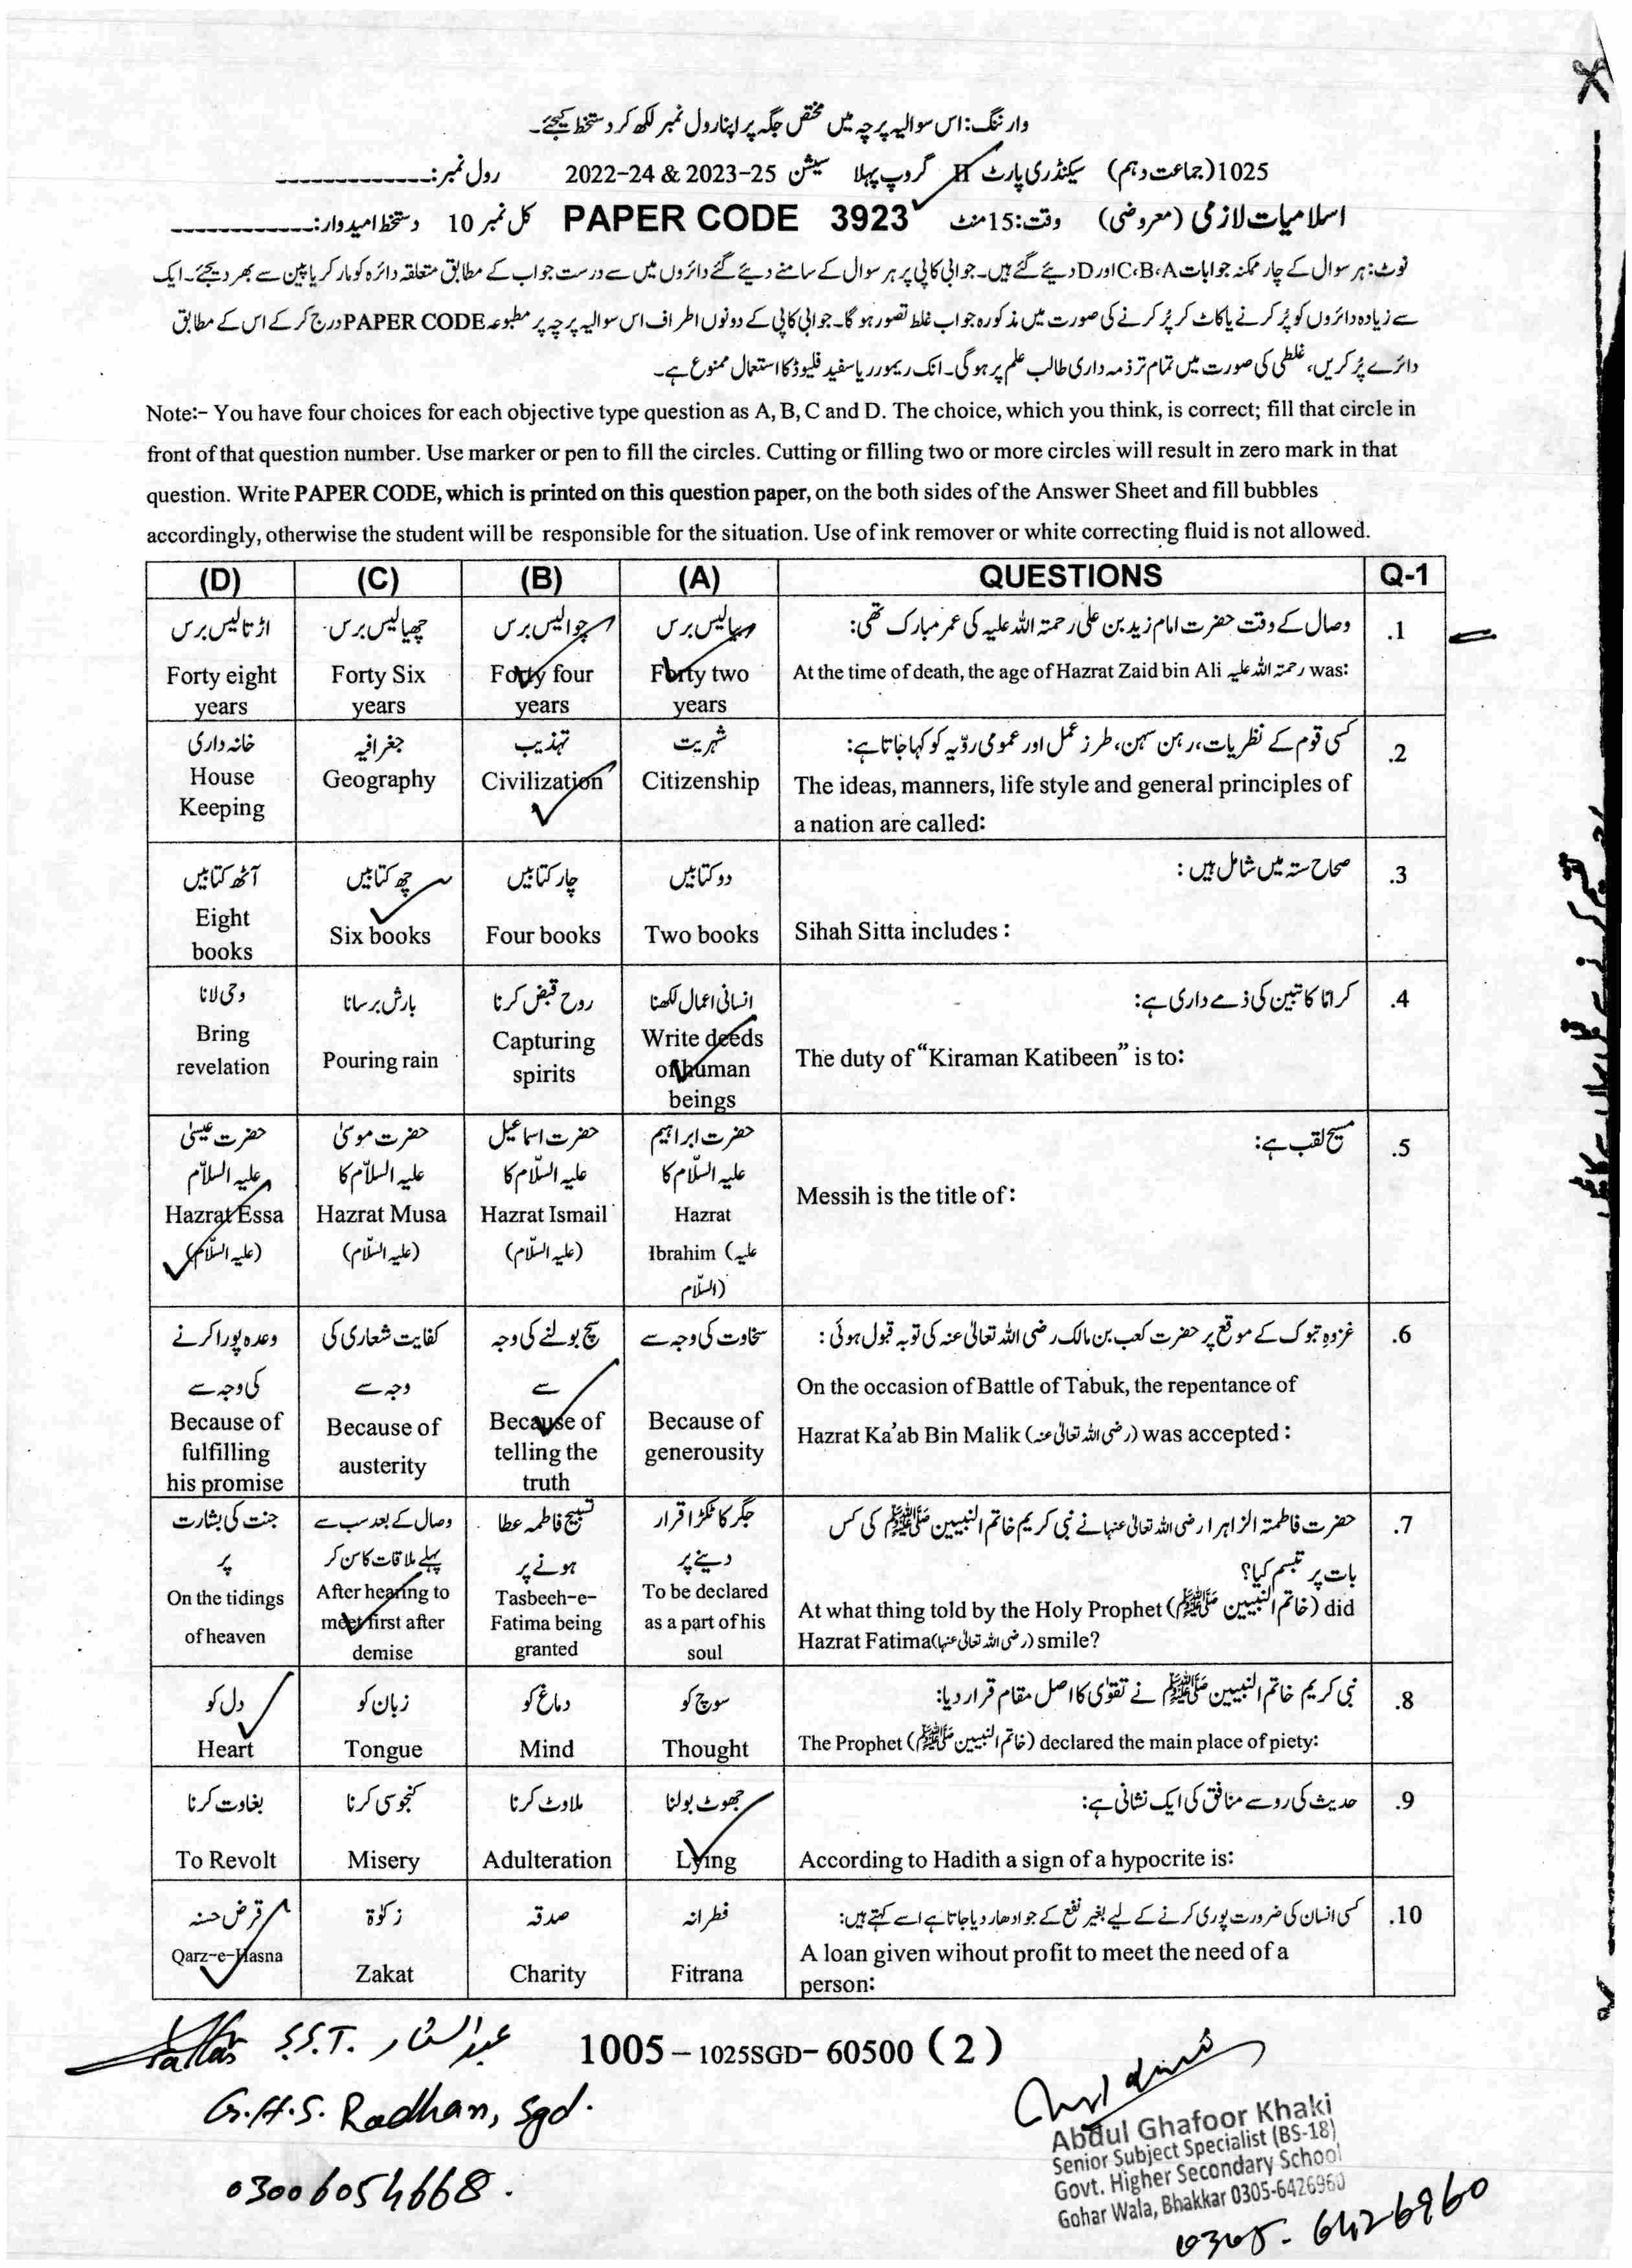 وارننگ: اس سوالیہ پرچہ میں مختص جگہ پر اپنا رول نمبر لکھ کر دستخط کیجئے۔
1025 (جماعت دہم) سیکنڈری پارٹ II گروپ پہلا سیشن 2022-24 & 2023-25 رول نمبر:
اسلامیات لازمی (معروضی) وقت:15 منٹ PAPER CODE 3923 کل نمبر 10 دستخط امیدوار:
نوٹ: ہر سوال کے چار ممکنہ جوابات C،B،A اور D دیئے گئے ہیں۔ جوابی کاپی پر ہر سوال کے سامنے دیئے گئے دائروں میں سے درست جواب کے مطابق متعلقہ دائرہ کو مارکر یا پین سے بھر دیجئے۔ ایک
سے زیادہ دائروں کو پُر کرنے یا کاٹ کر پُر کرنے کی صورت میں مذکورہ جواب غلط تصور ہو گا۔ جوابی کاپی کے دونوں اطراف اس سوالیہ پرچہ پر مطبوعہ PAPER CODE درج کر کے اس کے مطابق
دائرے پُر کریں، غلطی کی صورت میں تمام تر ذمہ داری طالب علم پر ہو گی۔ انک ریمور یا سفید فلیوڈ کا استعمال ممنوع ہے۔
Note:- You have four choices for each objective type question as A, B, C and D. The choice, which you think, is correct; fill that circle in
front of that question number. Use marker or pen to fill the circles. Cutting or filling two or more circles will result in zero mark in that
question. Write PAPER CODE, which is printed on this question paper, on the both sides of the Answer Sheet and fill bubbles
accordingly, otherwise the student will be responsible for the situation. Use of ink remover or white correcting fluid is not allowed.
(D) (C) (B) (A) QUESTIONS Q-1
.1 وصال کے وقت حضرت امام زید بن علی رحمتہ اللہ علیہ کی عمر مبارک تھی:
بیالیس برس چوالیس برس چھیالیس برس اڑتالیس برس
At the time of death, the age of Hazrat Zaid bin Ali رحمتہ اللہ علیہ was:
Forty eight years Forty Six years Forty four years Forty two years
.2 کسی قوم کے نظریات، رہن سہن، طرز عمل اور عمومی رویّہ کو کہا جاتا ہے:
شہریت تہذیب جغرافیہ خانہ داری
The ideas, manners, life style and general principles of
a nation are called:
House Keeping Geography Civilization Citizenship
.3 صحاح ستہ میں شامل ہیں:
دو کتابیں چار کتابیں چھ کتابیں آٹھ کتابیں
Sihah Sitta includes :
Eight books Six books Four books Two books
.4 کراماً کاتبین کی ذمے داری ہے:
انسانی اعمال لکھنا روح قبض کرنا بارش برسانا وحی لانا
The duty of “Kiraman Katibeen” is to:
Bring revelation Pouring rain Capturing spirits Write deeds of human beings
.5 مسیح لقب ہے:
حضرت ابراہیم علیہ السلّام کا حضرت اسماعیل علیہ السلّام کا حضرت موسیٰ علیہ السلّام کا حضرت عیسیٰ علیہ السلّام
Messih is the title of:
Hazrat Essa (علیہ السلّام) Hazrat Musa (علیہ السلّام) Hazrat Ismail (علیہ السلّام) Hazrat Ibrahim (علیہ السلّام)
.6 غزوہ تبوک کے موقع پر حضرت کعب بن مالک رضی اللہ تعالیٰ عنہ کی توبہ قبول ہوئی:
سخاوت کی وجہ سے سچ بولنے کی وجہ سے کفایت شعاری کی وجہ سے وعدہ پورا کرنے کی وجہ سے
On the occasion of Battle of Tabuk, the repentance of
Hazrat Ka'ab Bin Malik (رضی اللہ تعالیٰ عنہ) was accepted :
Because of fulfilling his promise Because of austerity Because of telling the truth Because of generousity
.7 حضرت فاطمتہ الزاہرا رضی اللہ تعالیٰ عنہا نے نبی کریم خاتم النبیین ﷺ کی کس
بات پر تبسم کیا؟
جگر کا ٹکڑا قرار دینے پر تسبیح فاطمہ عطا ہونے پر وصال کے بعد سب سے پہلے ملاقات کا سن کر جنت کی بشارت پر
At what thing told by the Holy Prophet (خاتم النبیین ﷺ) did
Hazrat Fatima (رضی اللہ تعالیٰ عنہا) smile?
On the tidings of heaven After hearing to meet first after demise Tasbeeh-e-Fatima being granted To be declared as a part of his soul
.8 نبی کریم خاتم النبیین ﷺ نے تقوٰی کا اصل مقام قرار دیا:
سوچ کو دماغ کو زبان کو دل کو
The Prophet (خاتم النبیین ﷺ) declared the main place of piety:
Heart Tongue Mind Thought
.9 حدیث کی رو سے منافق کی ایک نشانی ہے:
جھوٹ بولنا ملاوٹ کرنا کنجوسی کرنا بغاوت کرنا
According to Hadith a sign of a hypocrite is:
To Revolt Misery Adulteration Lying
.10 کسی انسان کی ضرورت پوری کرنے کے لیے بغیر نفع کے جو ادھار دیا جاتا ہے اسے کہتے ہیں:
فطرانہ صدقہ زکوٰۃ قرض حسنہ
A loan given wihout profit to meet the need of a
person:
Qarz-e-Hasna Zakat Charity Fitrana
1005 – 1025SGD– 60500 (2)
عبدالستار S.S.T.
G.H.S. Radhan, Sgd.
03006054668.
Abdul Ghafoor Khaki
Senior Subject Specialist (BS-18)
Govt. Higher Secondary School
Gohar Wala, Bhakkar 0305-6426960
0305-6426960